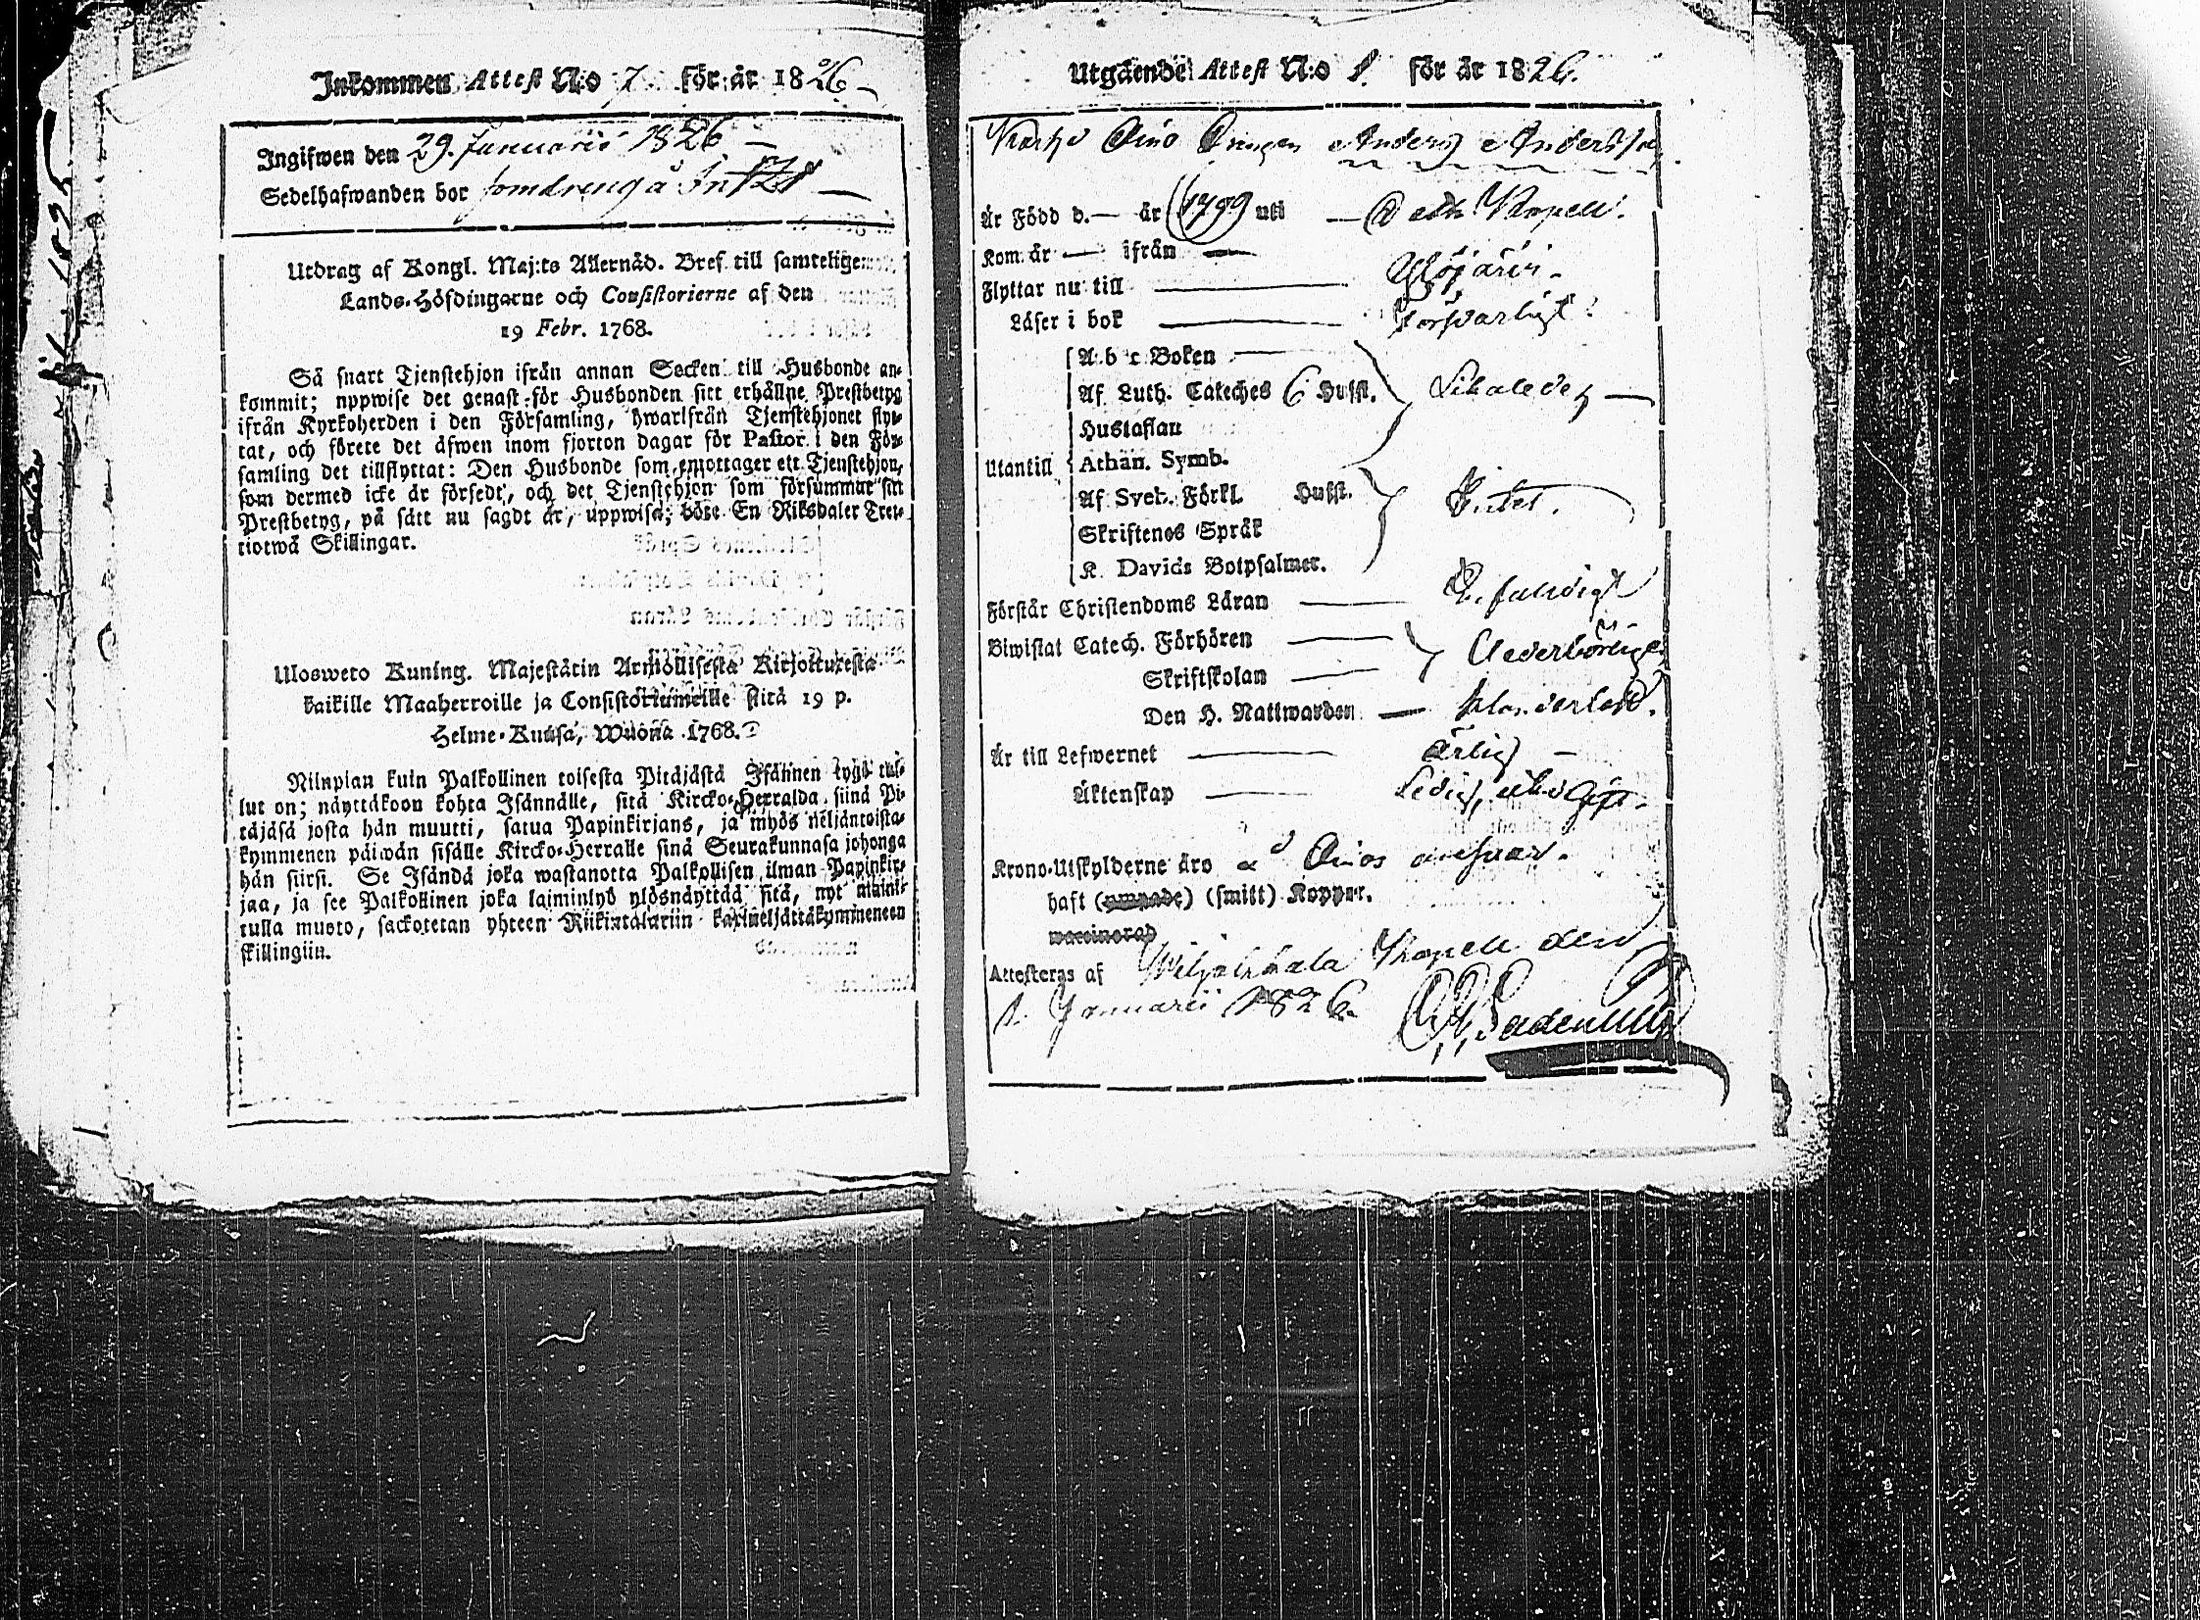 Inkommen Attest N:o 7 för år 1826
Ingifwen den 29. Januarii 1826
Sedelhafwanden bor som dreng å
Utdrag af Kongl. Maj:ts Allernåd. Bref till samtelige
Lands-Höfdingarne och Consistorierne af den
19 Febr. 1768.
Så snart Tjenstehjon ifrån annan Socken till Husbonde an-
kommit; uppwise det genast för Husbonden sitt erhållne Prestbetyg
ifrån Kyrkoherden i den Församling, hwarifrån Tjenstehjonet flyt-
tat, och förete det äfwen inom fjorton dagar för Pastor i den För-
samling det tillflyttat: Den Husbonde som emottager ett Tjenstehjon,
som dermed icke är försedt, och det Tjenstehjon som försummar sitt
Prestbetyg, på sätt nu sagdt är, uppwisa; böte En Riksdaler Tret-
tiotwå Skillingar.
Ulosweto Kuning. Majestätin Armollisesta Kirjoituxesta
kaikille Maaherroille ja Consistoriumeille siitä 19 p.
Helme-Kuusa, Wuonna 1768.
Niinpian kuin Palkollinen toisesta Pitäjästä Isännen tygö tul-
lut on; näyttäköön kohta Isännälle, sitä Kircko-Herralda siinä Pi-
täjäsä josta hän muutti, saatua Papinkirjans, ja myös neljäntoista-
kymmenen päiwän sisälle Kircko-Herralle siinä Seurakunnasa johonga
hän siirsi. Se Isändä joka wastanotta Palkollisen ilman Papinkir-
jaa, ja see Palkollinen joka laiminlyö ylösnäyttää sitä, nyt mainit-
tulla muoto, sackotetan yhteen Riikintalariin kaxineljättäkymmeneen
skillingiin.
Utgående Attest N:o 1 för år 1826.
Anders Andersson
Är Född d. — år 1799 uti — Kapell.
Kom år — ifrån —
Flyttar nu till — Ylöjärvi
Läser i bok — försvarligt
A b c Boken
Af Luth. Cateches 6 Hufst. Likaledes —
Hustaflan
Utantill Athan. Symb.
Af Sveb. Förkl. Hufst. Intet.
Skriftenes Språk
K. Davids Botpsalmer.
Förstår Christendoms Läran — Enfaldigt
Biwistat Catech. Förhören — Vederbörligen
Skriftskolan —
Den H. Nattwarden — klanderlöst.
Är till Lefwernet — Ärlig —
Äktenskap — Ledig,
Krono-Utskylderne äro å
haft (ympade) (smitt) Koppor.
waccinerad
Attesteras af Wiljakkala Kapell den
1. Januarii 1826.